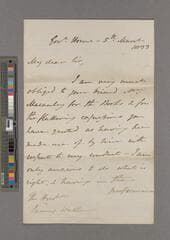 Govt. House - 5th March
1833
My dear Sir,
I am very much
obliged to your friend Mr.
Macaulay for the Books & for
the flattering expressions you
have quoted as having been
made use of by him with
respect to my conduct - I am
only anxious to do what is
right, & having in the
performance
The Honble